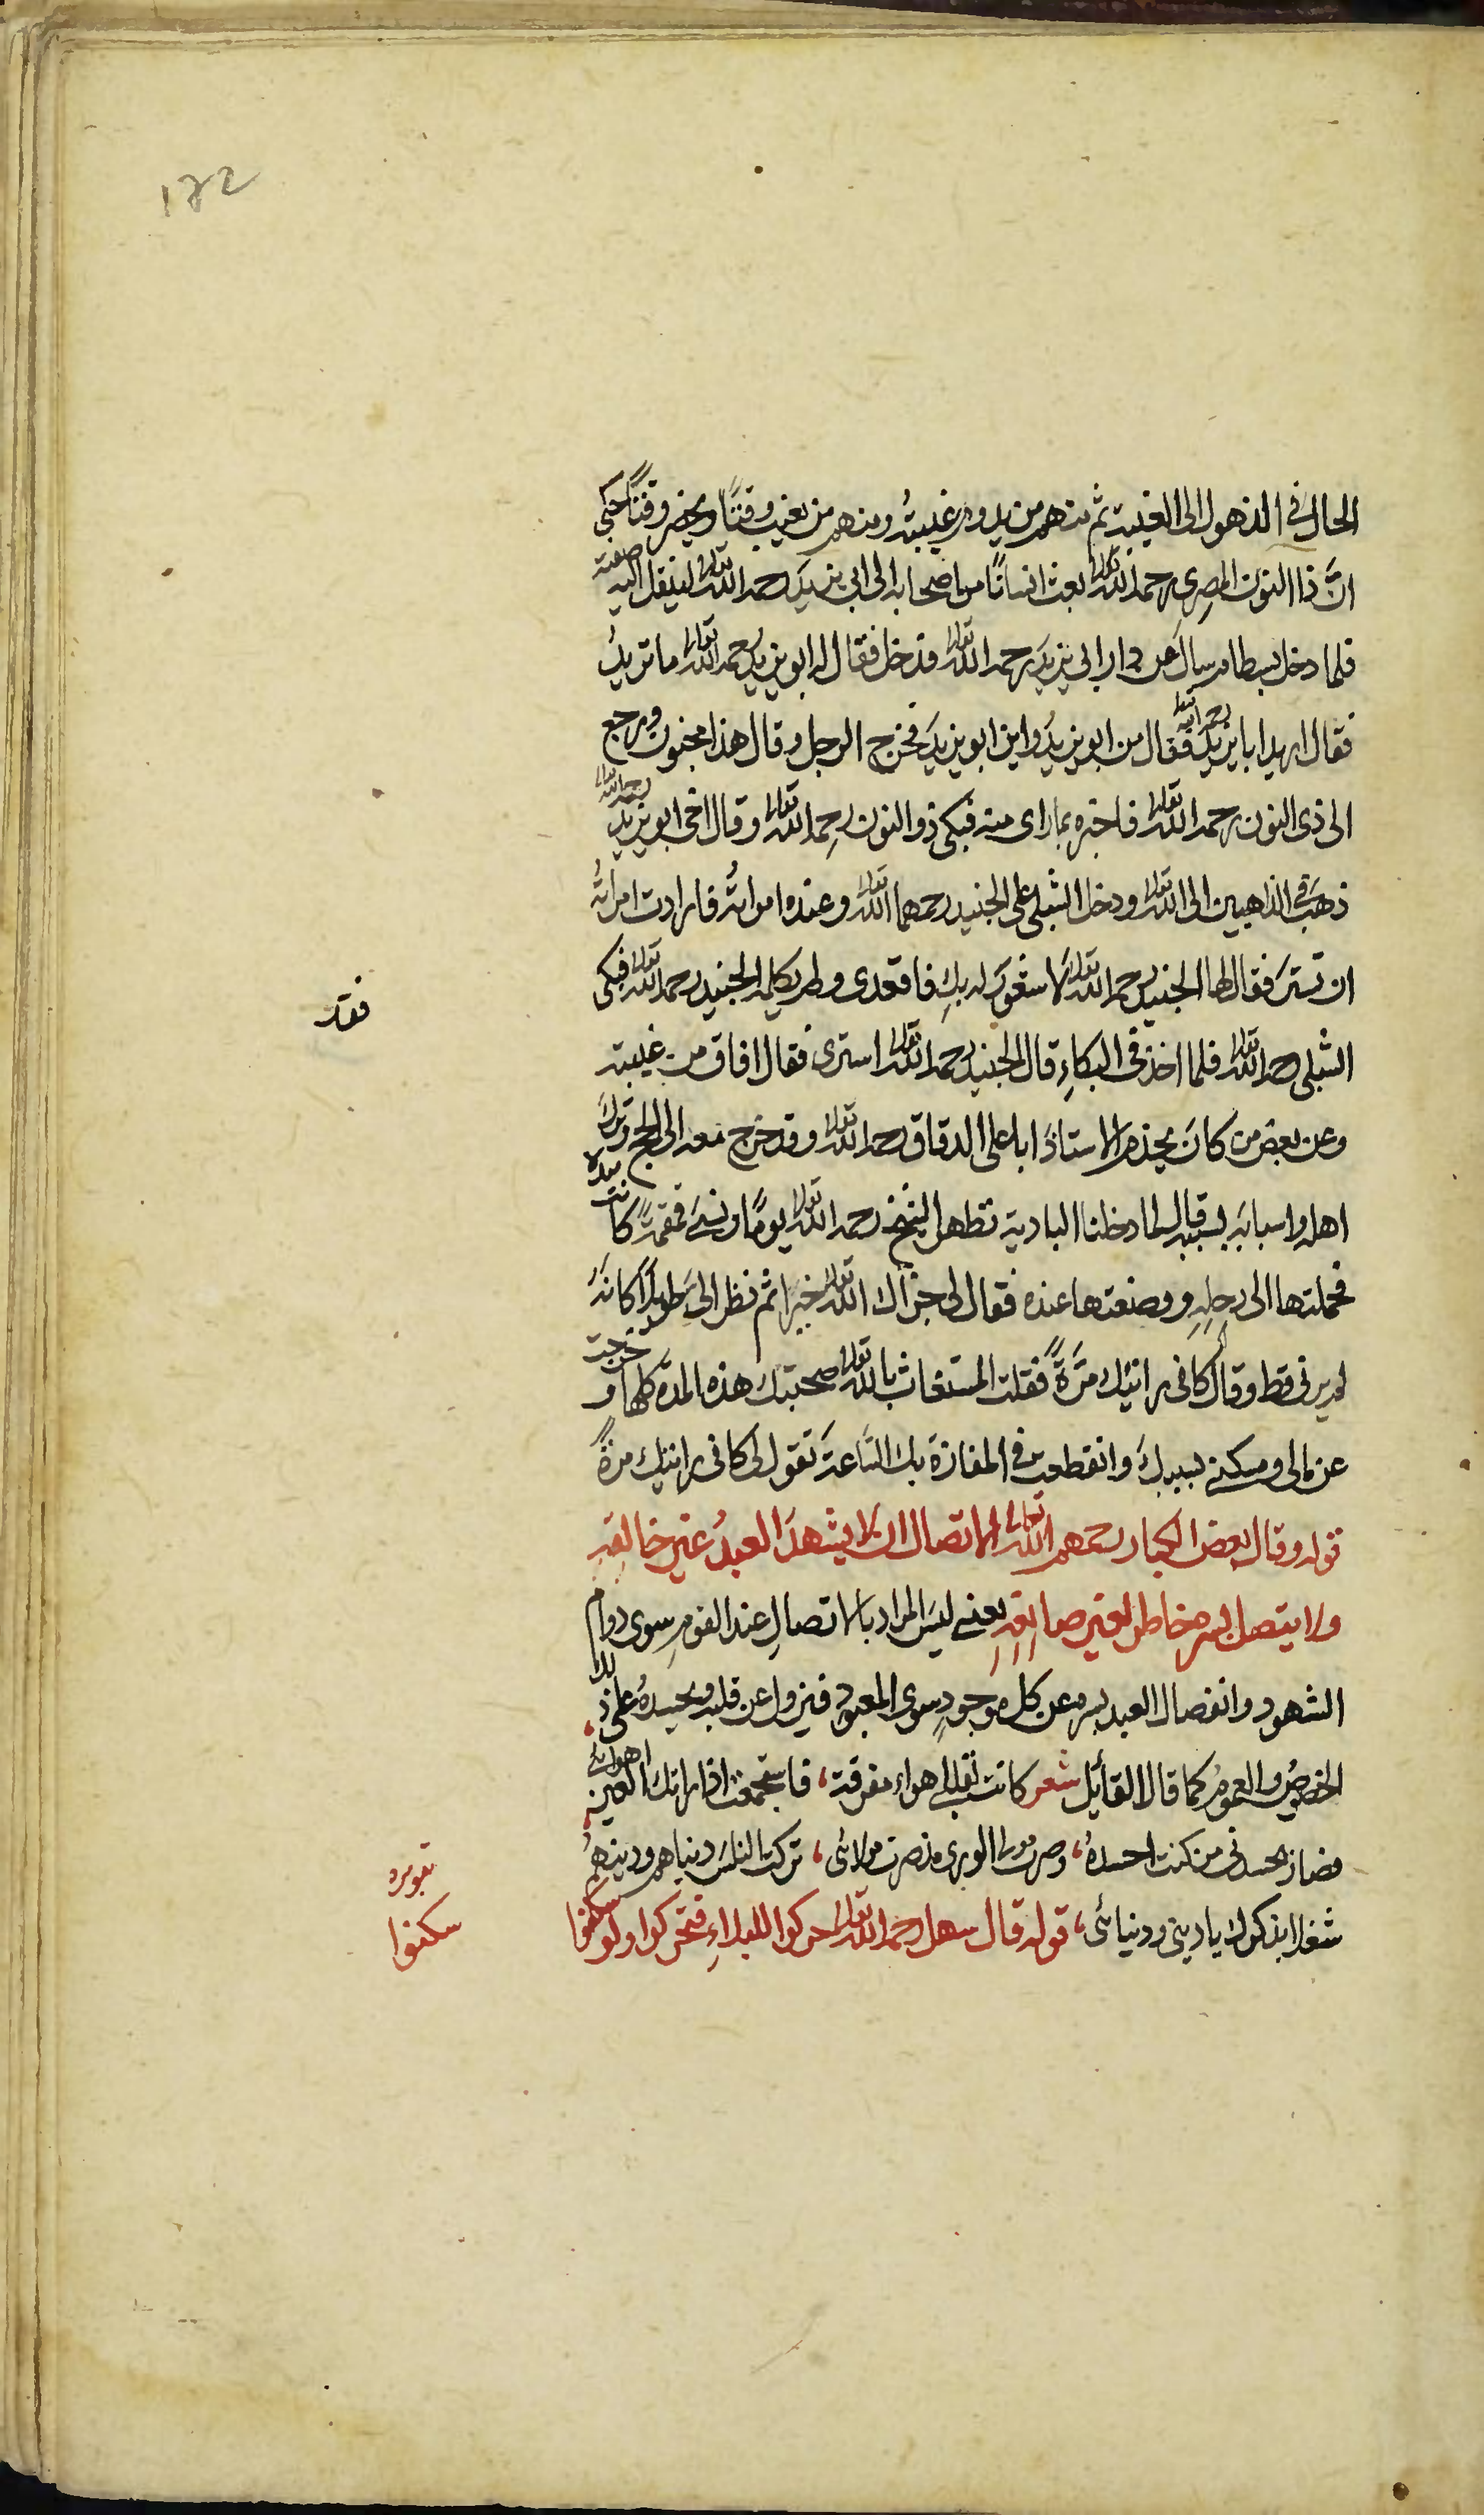 122
الحال في الذهول الى الغيبة ثم منهم من يدوم غيبتهُ ومنهم من يغيب وقتًا ويحضر وقتًا حكى
انَّ ذا النون المصري رحمه الله تعالى بعث انسانًا من اصحابه الى ابي يزيدَ رحمه الله تعالى لينقل اليه صفته
فلما دخل بسطام سال عن دار ابي يزيدَ رحمه الله تعالى فدخل فقال له ابو يزيدُ رحمه الله تعالى ما تريدُ
فقال اريد ابا يزيدَ رحمه الله تعالى فقال من ابو يزيدُ واين ابو يزيدَ فخرج الرجل وقال هذا مجنون ورجع
الى ذى النون رحمه الله تعالى فاخبره بما راى منه فبكى ذو النون رحمه الله تعالى وقال اخى ابو يزيد رحمه الله تعالى
ذهبَ في الذاهبين الى الله تعالى ودخل الشبلى على الجنيد رحمهما الله تعالى وعنده امراتُه فارادت امراتُه
ان تستترَ فقال لها الجنيد رحمه الله تعالى لا شعورَ له بكِ فاقعدى ولم يكلمه الجنيد رحمه الله تعالى فبكى
الشبلى رحمه الله تعالى فلما اخذ في البكاءِ قال الجنيد رحمه الله تعالى استترى فقال افاق من غيبته
وعن بعض من كان يخدم الاستاذَ ابا على الدقاق رحمه الله تعالى وقد خرج معه الى الحج وتركَ
اهله واسبابَه بسببه قال لما دخلنا البادية تطهر الشيخ رحمه الله تعالى يومًا ونسىَ قمقمةً كانت بيده
فحملتها الى رحلِهِ ووضعتها عنده فقال لى جزاك الله تعالى خيرًا ثم نظر الى طويلًا كانه
لم يرنى قط وقال كانى رايتك مرّةً فقلت المستغاث بالله تعالى صحبتك هذه المدة كلها وخرجت
عن مالى ومسكنى بسببك وانقطعت في المفازة بك الساعةَ تقول لى كانى رايتك مرةً
قوله وقال بعض الكبار رحمهم الله تعالى الاتصال ان لا يشهدَ العبدُ غير خالقه
ولا يتصل بسره خاطر لغير صانعِهِ يعنى ليسَ المراد بالاتصالِ عند القومِ سوى دوام
الشهود وانفصال العبد بسره عن كل موجودٍ سوى المعبود فيزول عن قلبه ويحسدهُ على ذلك
الخصوصُ والعمومُ كما قال القائيل شعر كانت لقلبى اهواء مفرقة ، فاستجمعت اذ راتك العين اهوائى ،
فصار يحسدنى من كنت احسدهُ ، وصرت مولى الورى مذ صرت مولائى ، تركت للناسَ دنياهم ودينهمُ
شغلا بذكرك يا دينى ودنيائى ، قوله قال سهل رحمه الله تعالى حركوا للبلاءِ فتحركوا ولو سكنوا
فقد
سكنوا